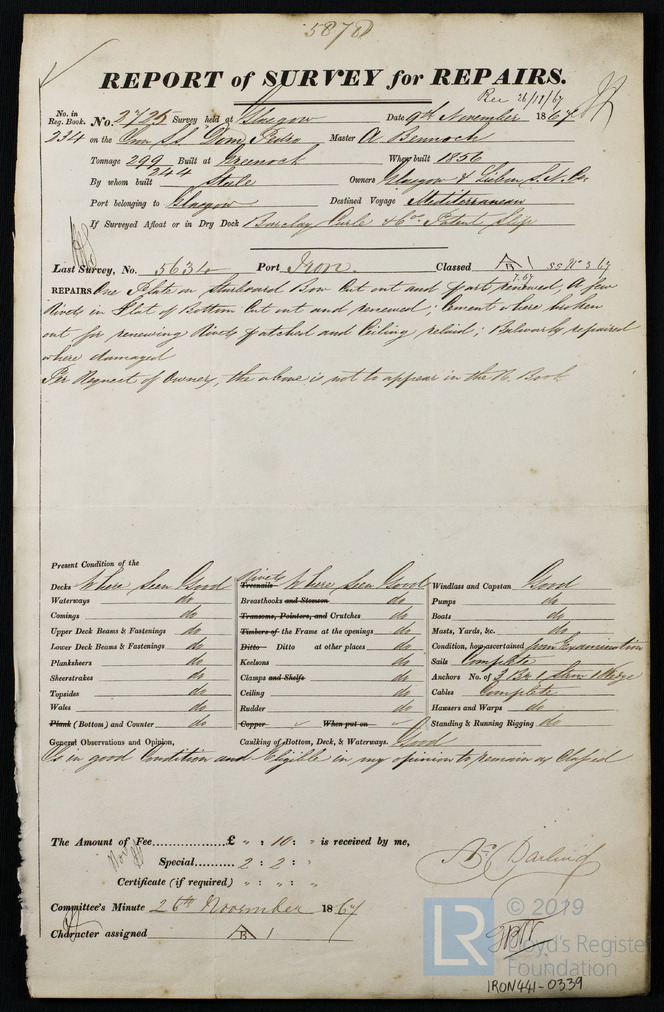 5878
REPORT of SURVEY for REPAIRS.
Rec 26/12/67
No. in Reg. Book. No. 2725 Survey held at Glasgow Date 9th November 1867
234 on the Iron S.S. "Dom Pedro Master A. Bennoch
Tonnage 299 Built at Greenock When built 1856
244
By whom built Steele Owners Glasgow & Lisbon S. N. Co.
Port belonging to Glasgow Destined Voyage Mediterranean
If Surveyed Afloat or in Dry Dock Barclay Curle & Co. Patent Slip
Last Survey, No. 5634 Port Iron. Classed A 1 SS No 3 67
B
7.67
REPAIRS One Plate on starboard Bow cut out and part renewed, A few
Rivets in Flat of Bottom Cut out and renewed; Cement where broken
out for renewing Rivets patched and Ceiling relaid; Bulwarks repaired
where damaged
Per Request of Owners, the above is not to appear in the R. Book
Present Condition of the
Decks Where Seen Good Rivets Treenails Where Seen Good Windlass and Capstan Good
Waterways do Breasthooks and Stemson do Pumps do
Comings do Transoms, Pointers, and Crutches do Boats do
Upper Deck Beams & Fastenings do Timbers of the Frame at the openings do Masts, Yards, &c. do
Lower Deck Beams & Fastenings do Ditto Ditto at other places do Condition, how ascertained from Examination
Planksheers do Keelsons do Sails Complete
Sheerstrakes do Clamps and Shelfs do Anchors No. of 3 Br 1 Strm 1 Kedge
Topsides do Ceiling do Cables Complete
Wales do Rudder do Hawsers and Warps do
Plank (Bottom) and Counter do Copper When put on Standing & Running Rigging do
General Observations and Opinion, Caulking of Bottom, Deck, & Waterways. Good
Is in good Condition and Eligible in my opinion to remain as Classed
The Amount of Fee...............£ " : 10 : " is received by me,
Special.......... 2 : 2 : "
Certificate (if required) " : " : "
Committee's Minute 26th November 1867
Character assigned A 1
B
© 2019
LR Lloyd's Register
Foundation
IRON441-0339